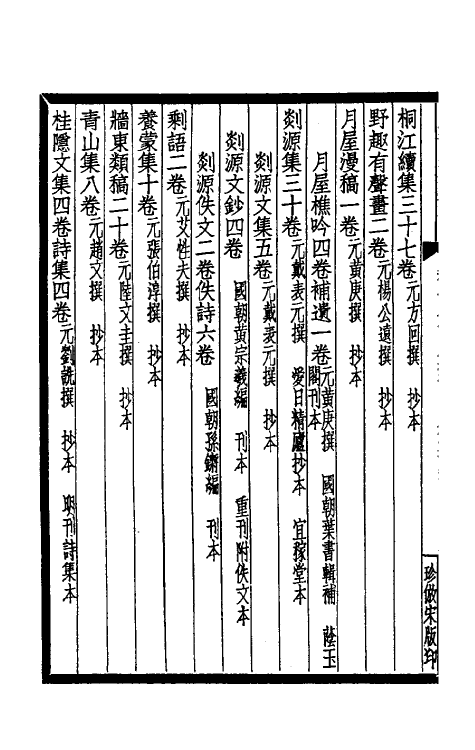 桐江續集三十七卷元方回撰 抄本
野趣有聲畫二卷元楊公遠撰 抄本
月屋漫稿一卷元黃庚撰 抄本
月屋樵吟四卷補遺一卷元黃庚撰 國朝葉書輯補 蔭玉閣刊本
剡源集三十卷元戴表元撰 愛日精廬抄本 宜稼堂本
剡源文集五卷元戴表元撰 抄本
剡源文鈔四卷 國朝黃宗羲編 刊本 重刊附佚文本
剡源佚文二卷佚詩六卷 國朝孫鏘編 刊本
剩語二卷元艾性夫撰 抄本
養蒙集十卷元張伯淳撰 抄本
牆東類稿二十卷元陸文圭撰 抄本
青山集八卷元趙文撰 抄本
桂隱文集四卷詩集四卷元劉詵撰 抄本 明刊詩集本
珍倣宋版印